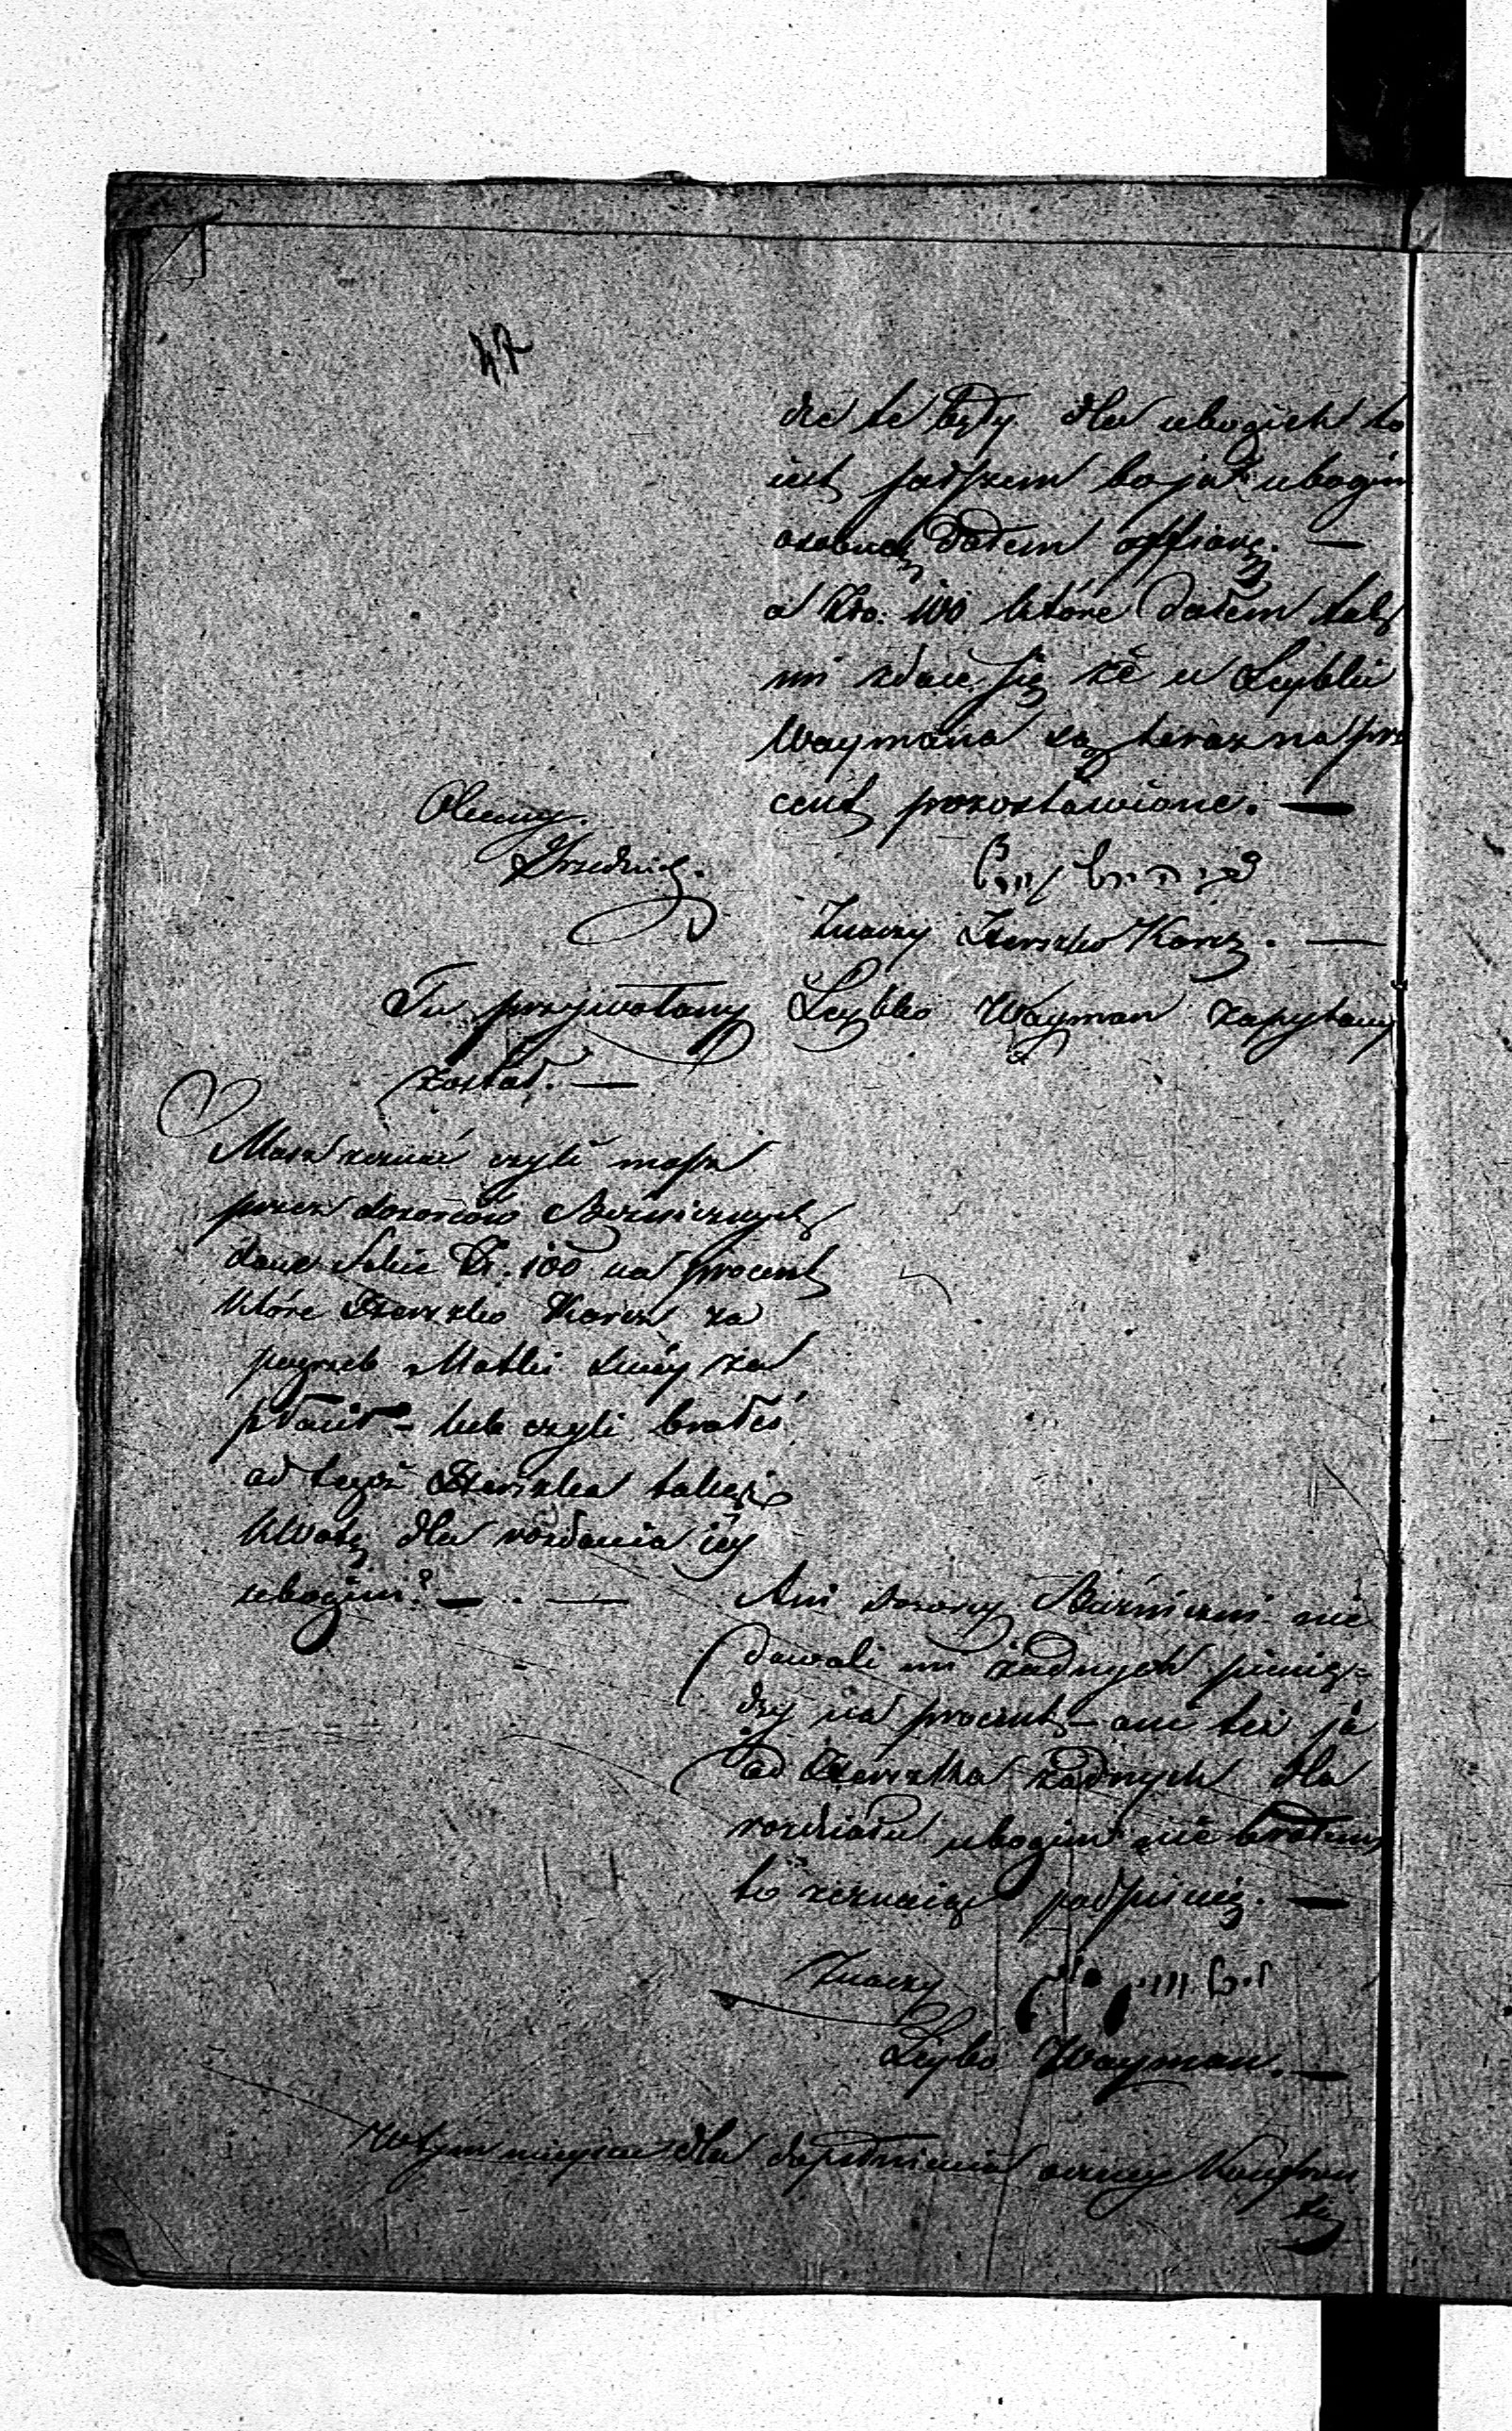 47
dze te były dla ubogich to
iest fałszem bo ja ubogim
osobną dałem offiarę. —
a Zło: 100 które dałem tak
mi zdaie się że u Leybki
Waymana są teraz na pro
cent pozostawione. —
Obecny.
Urzednik.
Znaczy Herszko Karcz. —
Tu przywołany Leybko Wayman zapytany
został. —
Masz zeznać czyli masz
przez dozorców Bożnicznych
dane sobie Zł. 100 na procent
które Herszko Karcz za
pogrzeb Matki swéy za
płacił - lub czyli brałeś
od tegoż Herszka takąż
kwotę dla rozdania iéy
ubogim? — . —
Ani dozorcy Bóżniczni nie
dawali mi żadnych pienię=
dzy na procent - ani też ja
od Herszka żadnych dla
rozdziału ubogim nie brałem,
to zeznaiąc podpisuię. —
Znaczy
Leybko Wayman. —
W tym mieyscu dla dopełnienia oczney Konfron